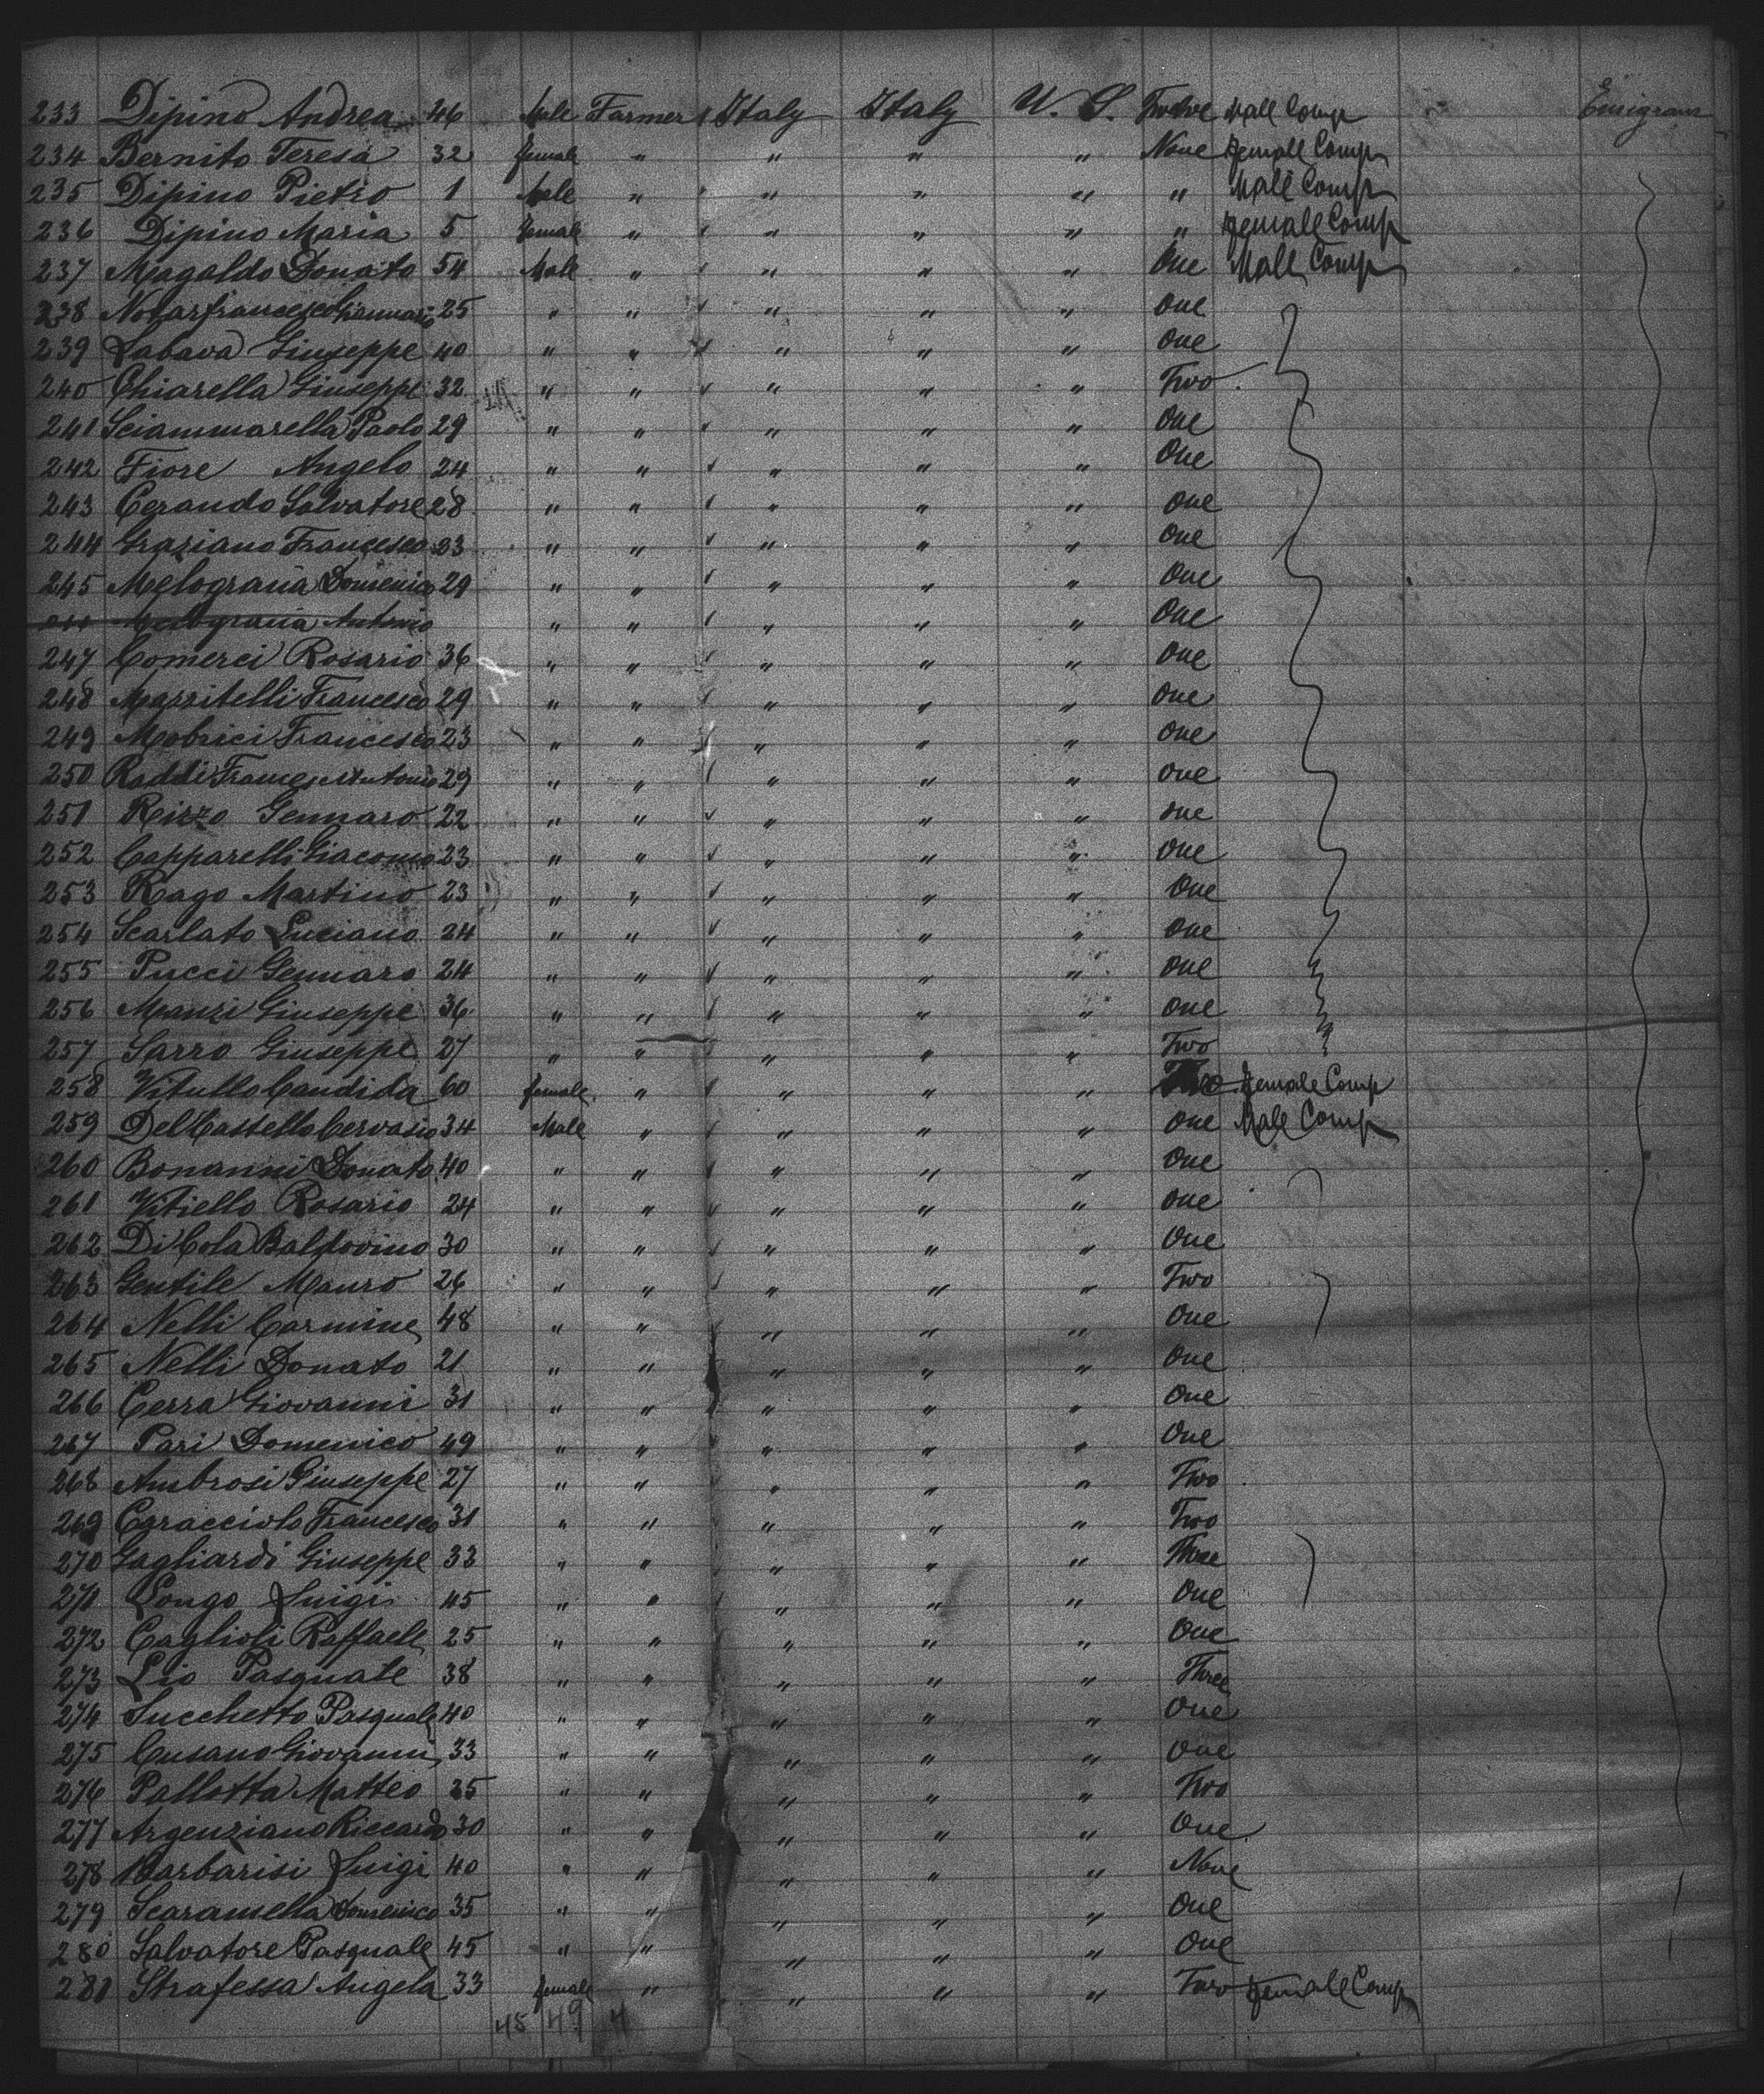 233 Dipino Andrea 46 Male Farmer Italy Italy U. S. Twelve Male Comp Emigrant
234 Bernito Teresa 32 female " " " " None Female Comp
235 Dipino Pietro 1 Male " " " " " Male Comp
236 Dipino Maria 5 female " " " " " Female Comp
237 Magaldo Donato 54 Male " " " " One Male Comp
238 Notarfrancesco Gennaro 25 " " " " " One
239 Labava Giuseppe 40 " " " " " One
240 Chiarella Giuseppe 32 " " " " " Two
241 Sciammarella Paolo 29 " " " " " One
242 Fiore Angelo 24 " " " " " One
243 Cerando Salvatore 28 " " " " " one
244 Graziano Francesco 33 " " " " " One
245 Melograna Domenico 29 " " " " " One
Melograna Antonio " " " " " One
247 Comerci Rosario 36 " " " " " One
248 Mazzitelli Francesco 29 " " " " " One
249 Mobrici Francesco 23 " " " " " One
250 Raddi Francescantonio 29 " " " " " One
251 Rizzo Gennaro 22 " " " " " one
252 Capparelli Giacomo 23 " " " " " One
253 Rago Martino 23 " " " " " One
254 Scarlato Luciano 24 " " " " " One
255 Pucci Gennaro 24 " " " " " One
256 Manzi Giuseppe 36 " " " " " One
257 Sarro Giuseppe 27 " " " " " Two
258 Vitullo Candida 60 female " " " " Female Comp
259 Del Castello Cervasio 34 Male " " " " One Male Comp
260 Bonanni Donato 40 " " " " " One
261 Vitiello Rosario 24 " " " " " One
262 Di Cola Baldovino 30 " " " " " One
263 Gentile Mauro 26 " " " " " Two
264 Nelli Carmine 48 " " " " " One
265 Nelli Donato 21 " " " " " One
266 Cerra Giovanni 31 " " " " " One
267 Pari Domenico 49 " " " " " One
268 Ambrosi Giuseppe 27 " " " " " Two
269 Caracciolo Francesco 31 " " " " " Two
270 Gagliardi Giuseppe 33 " " " " " Three
271 Longo Luigi 45 " " " " " One
272 Caglioti Raffaele 25 " " " " " One
273 Lio Pasquale 38 " " " " " Three
274 Succhetto Pasquale 40 " " " " " One
275 Cusano Giovanni 33 " " " " " One
276 Pallotta Matteo 35 " " " " " Two
277 Argenziano Riccardo 30 " " " " " One
278 Barbarisi Luigi 40 " " " " " None
279 Scaramella Domenico 35 " " " " " One
280 Salvatore Pasquale 45 " " " " " One
281 Strafessa Angela 33 female " " " " Two Female Comp
45 49 4